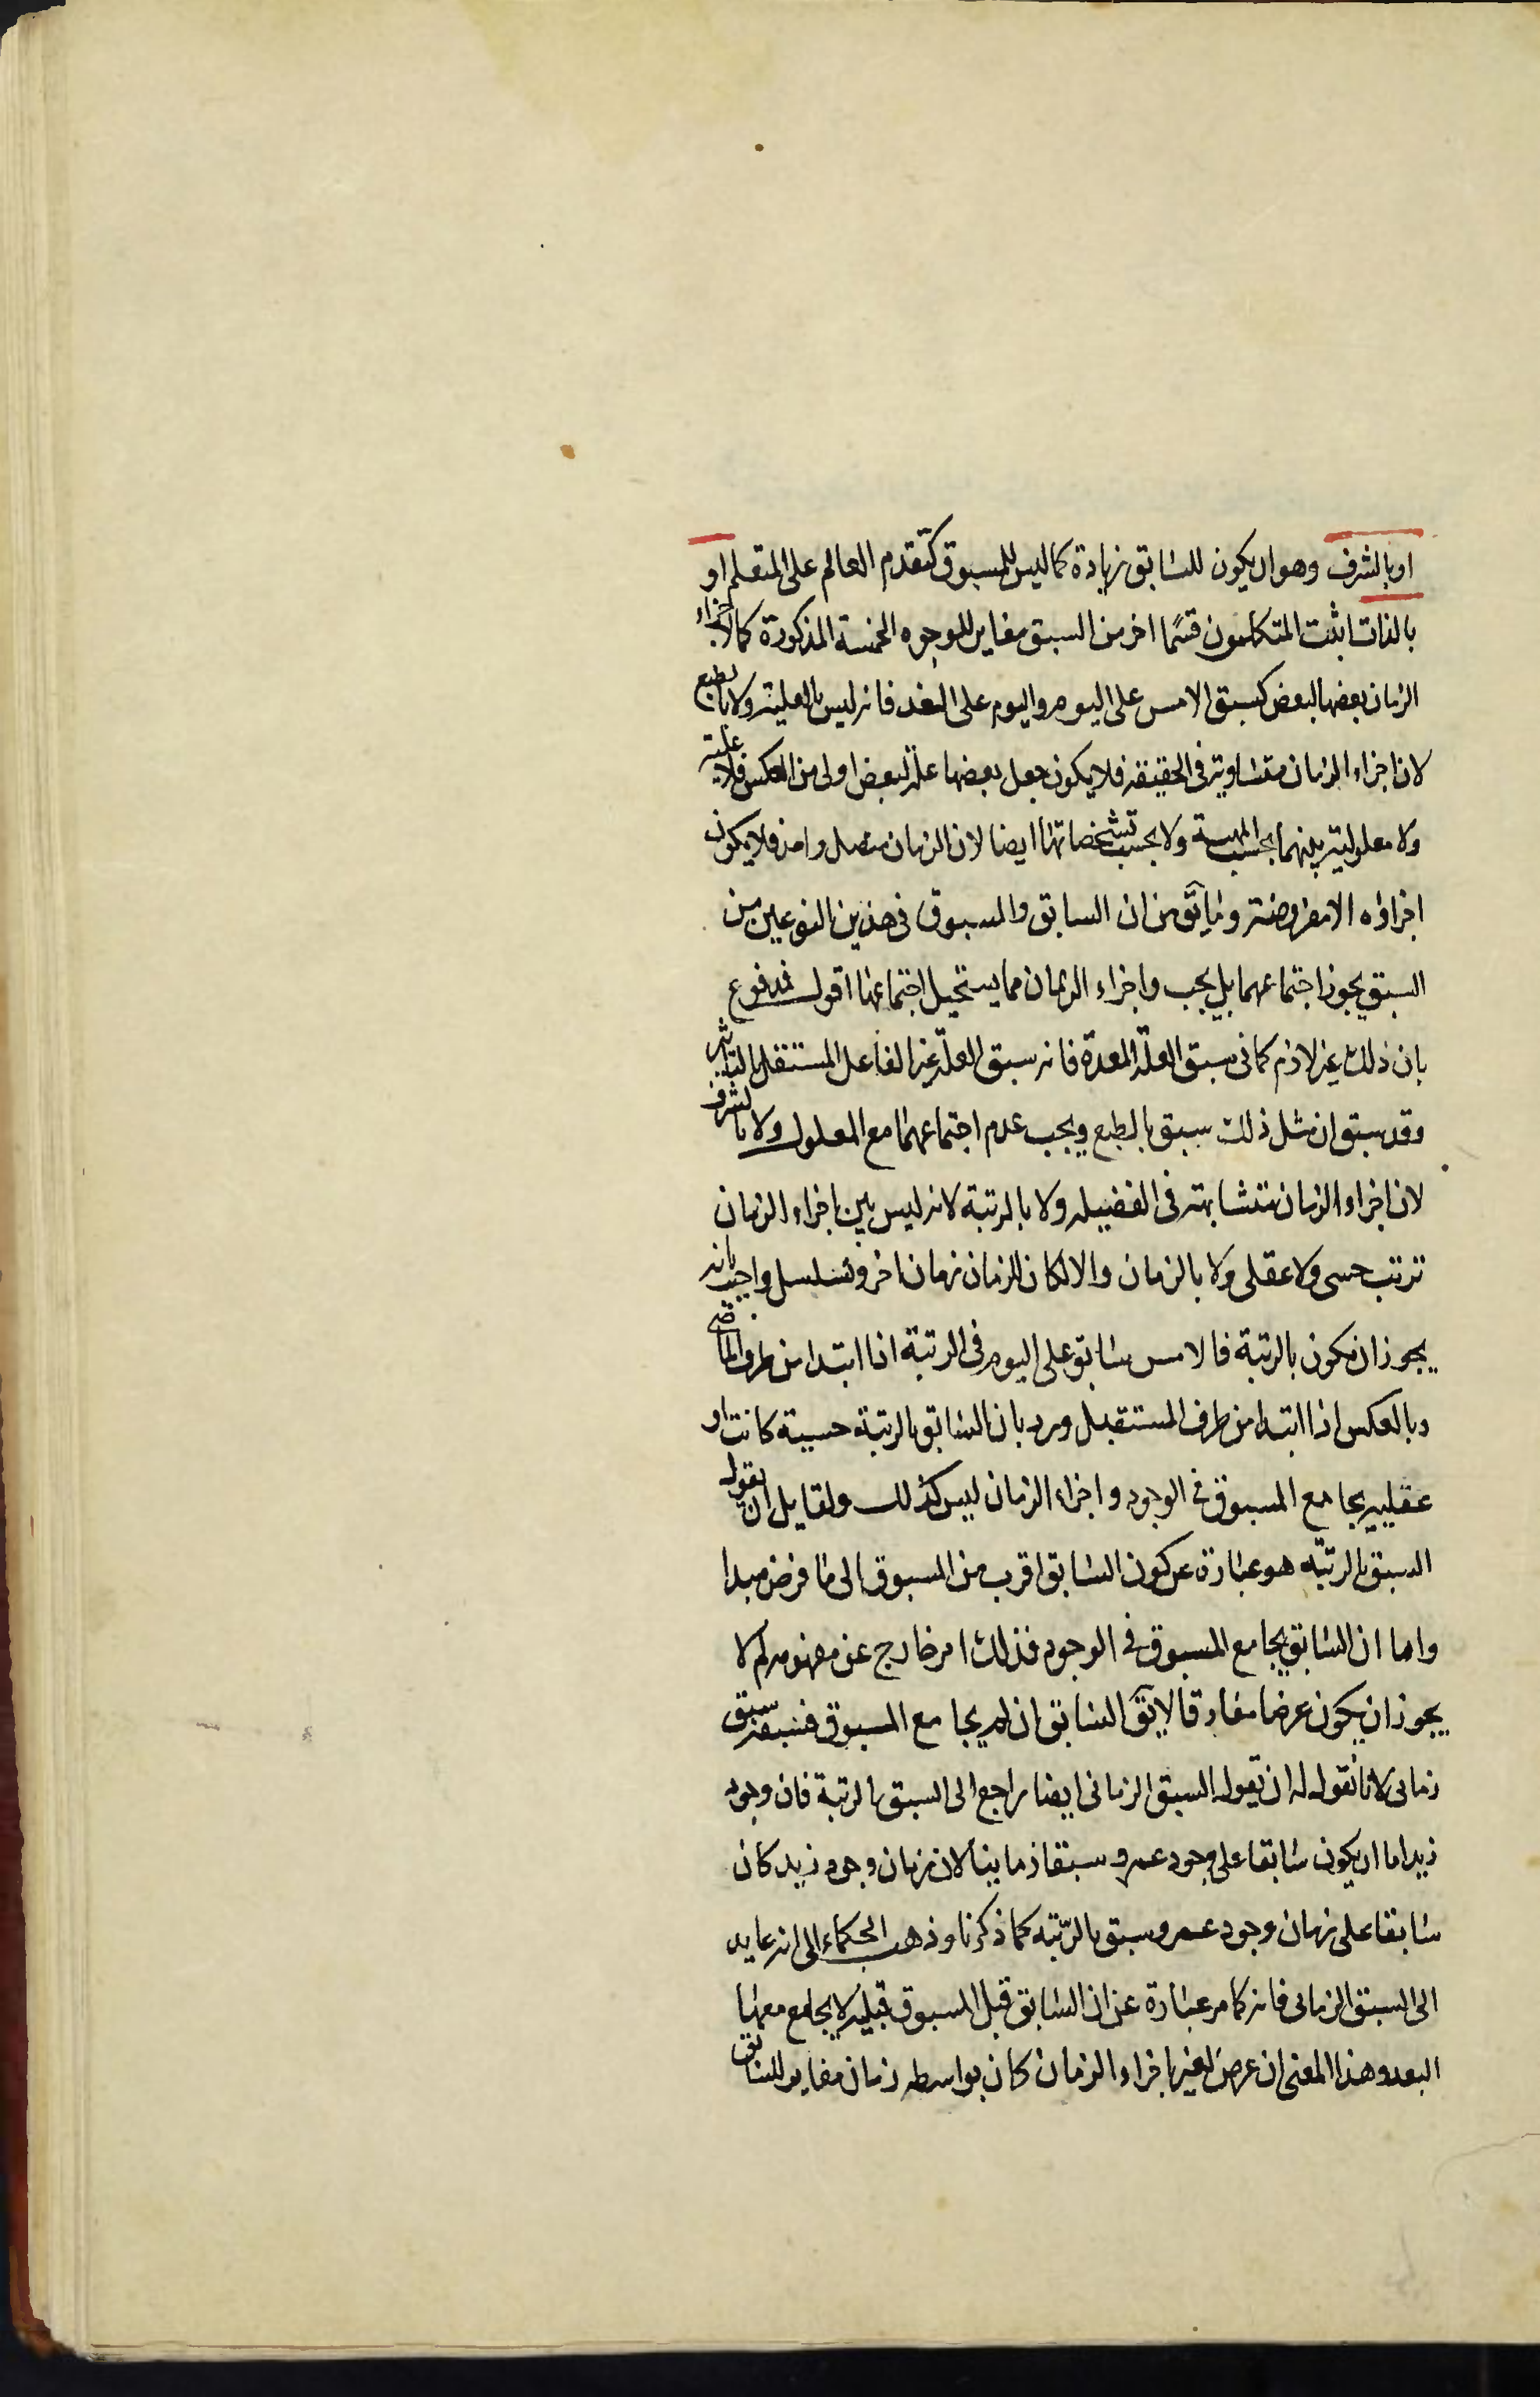 او بالشرف وهو ان يكون للسابق زيادة كما ليس للمسبوق كتقدم العالم على المتعلم او
بالذات اثبت المتكلمون قسما اخر من السبق مغاير للوجوه الخمسة المذكورة كما لاجزاء
الزمان بعضها لبعض كسبق الامس على اليوم واليوم على الغد فانه ليس بالعلية ولا بالطبع
لان اجزاء الزمان متساوية فى الحقيقة فلا يكون جعل بعضها علة لبعض اولى من العكس فلا علية
ولا معلولية بينهما بحسب المهية ولا بحسب تشخصاتها ايضا لان الزمان متصل واحد فلا يكون
اجزاؤه الا مفروضة وما يق من ان السابق والمسبوق فى هذين النوعين من
السبق يجوز اجتماعهما بل يجب واجزاء الزمان مما يستحيل اجتماعها اقول فمدفوع
بان ذلك غير لازم كما فى سبق العلة المعدة فانه سبق العلة غير الفاعل المستقل بالتاثير
وقد سبق ان مثل ذلك سبق بالطبع ويجب عدم اجتماعهما مع المعلول ولا بالشرف
لان اجزاء الزمان متشابهة فى الفضيلة ولا بالرتبة لانه ليس بين اجزاء الزمان
ترتب حسى ولا عقلى ولا بالزمان والا لكان للزمان زمان اخر وتسلسل واجيب بانه
يجوز ان يكون بالرتبة فالامس سابق على اليوم فى الرتبة اذا ابتدا من طرف الماضى
وبالعكس اذا ابتدا من طرف المستقبل ورد بان السابق بالرتبة حسية كانت او
عقلية يجامع المسبوق فى الوجود واجزاء الزمان ليس كذلك ولقايل ان يقول
السبق بالرتبة هو عبارة عن كون السابق اقرب من المسبوق الى ما فرض مبدا
واما ان السابق يجامع المسبوق فى الوجود فذلك امر خارج عن مفهومه لم لا
يجوز ان يكون عرضا مفارقا لا يق السابق ان لم يجامع المسبوق فسبقه سبق
زمانى لانا نقول له ان يقول السبق الزمانى ايضا راجع الى السبق بالرتبة فان وجود
زيد اما ان يكون سابقا على وجود عمرو سبقا زمانيا لان زمان وجود زيد كان
سابقا على زمان وجود عمرو سبق بالرتبة كما ذكرنا وذهب الحكماء الى انه عايد
الى السبق الزمانى فانه كما مر عبارة عن ان السابق قبل المسبوق قبلية لا يجامع معها
البعد وهذا المعنى ان عرض لغير اجزاء الزمان كان بواسطه زمان مغاير للسابق